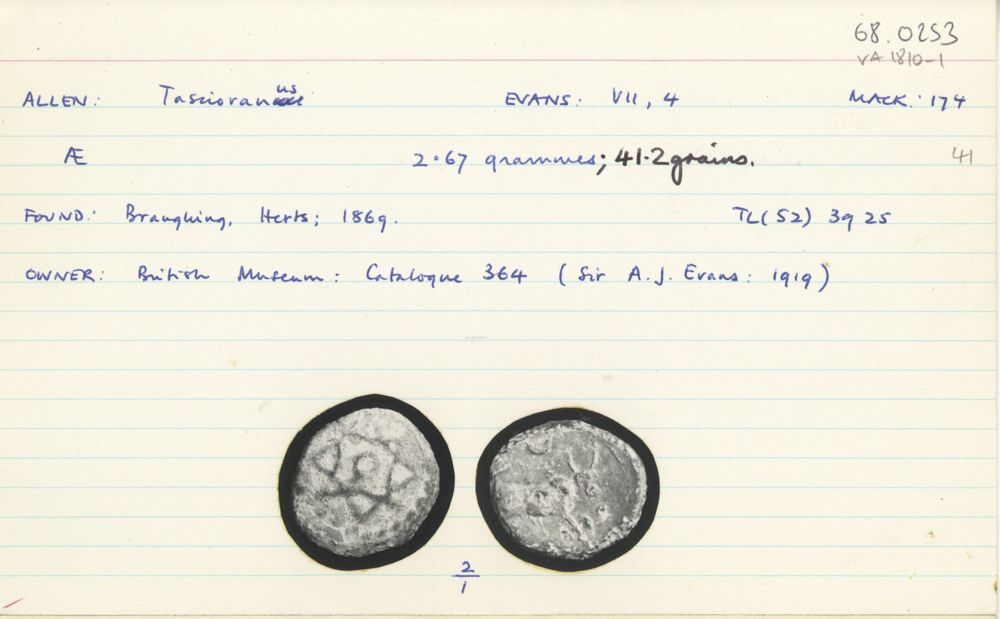 68.0253
VA 1810-1
ALLEN: Tasciovanus EVANS: VII, 4 MACK: 174
Æ 2·67 grammes; 41·2 grains. 41
FOUND: Braughing, Herts; 1869. TL(52) 39 25
OWNER: British Museum: Catalogue 364 (Sir A.J. Evans: 1919)
2
1